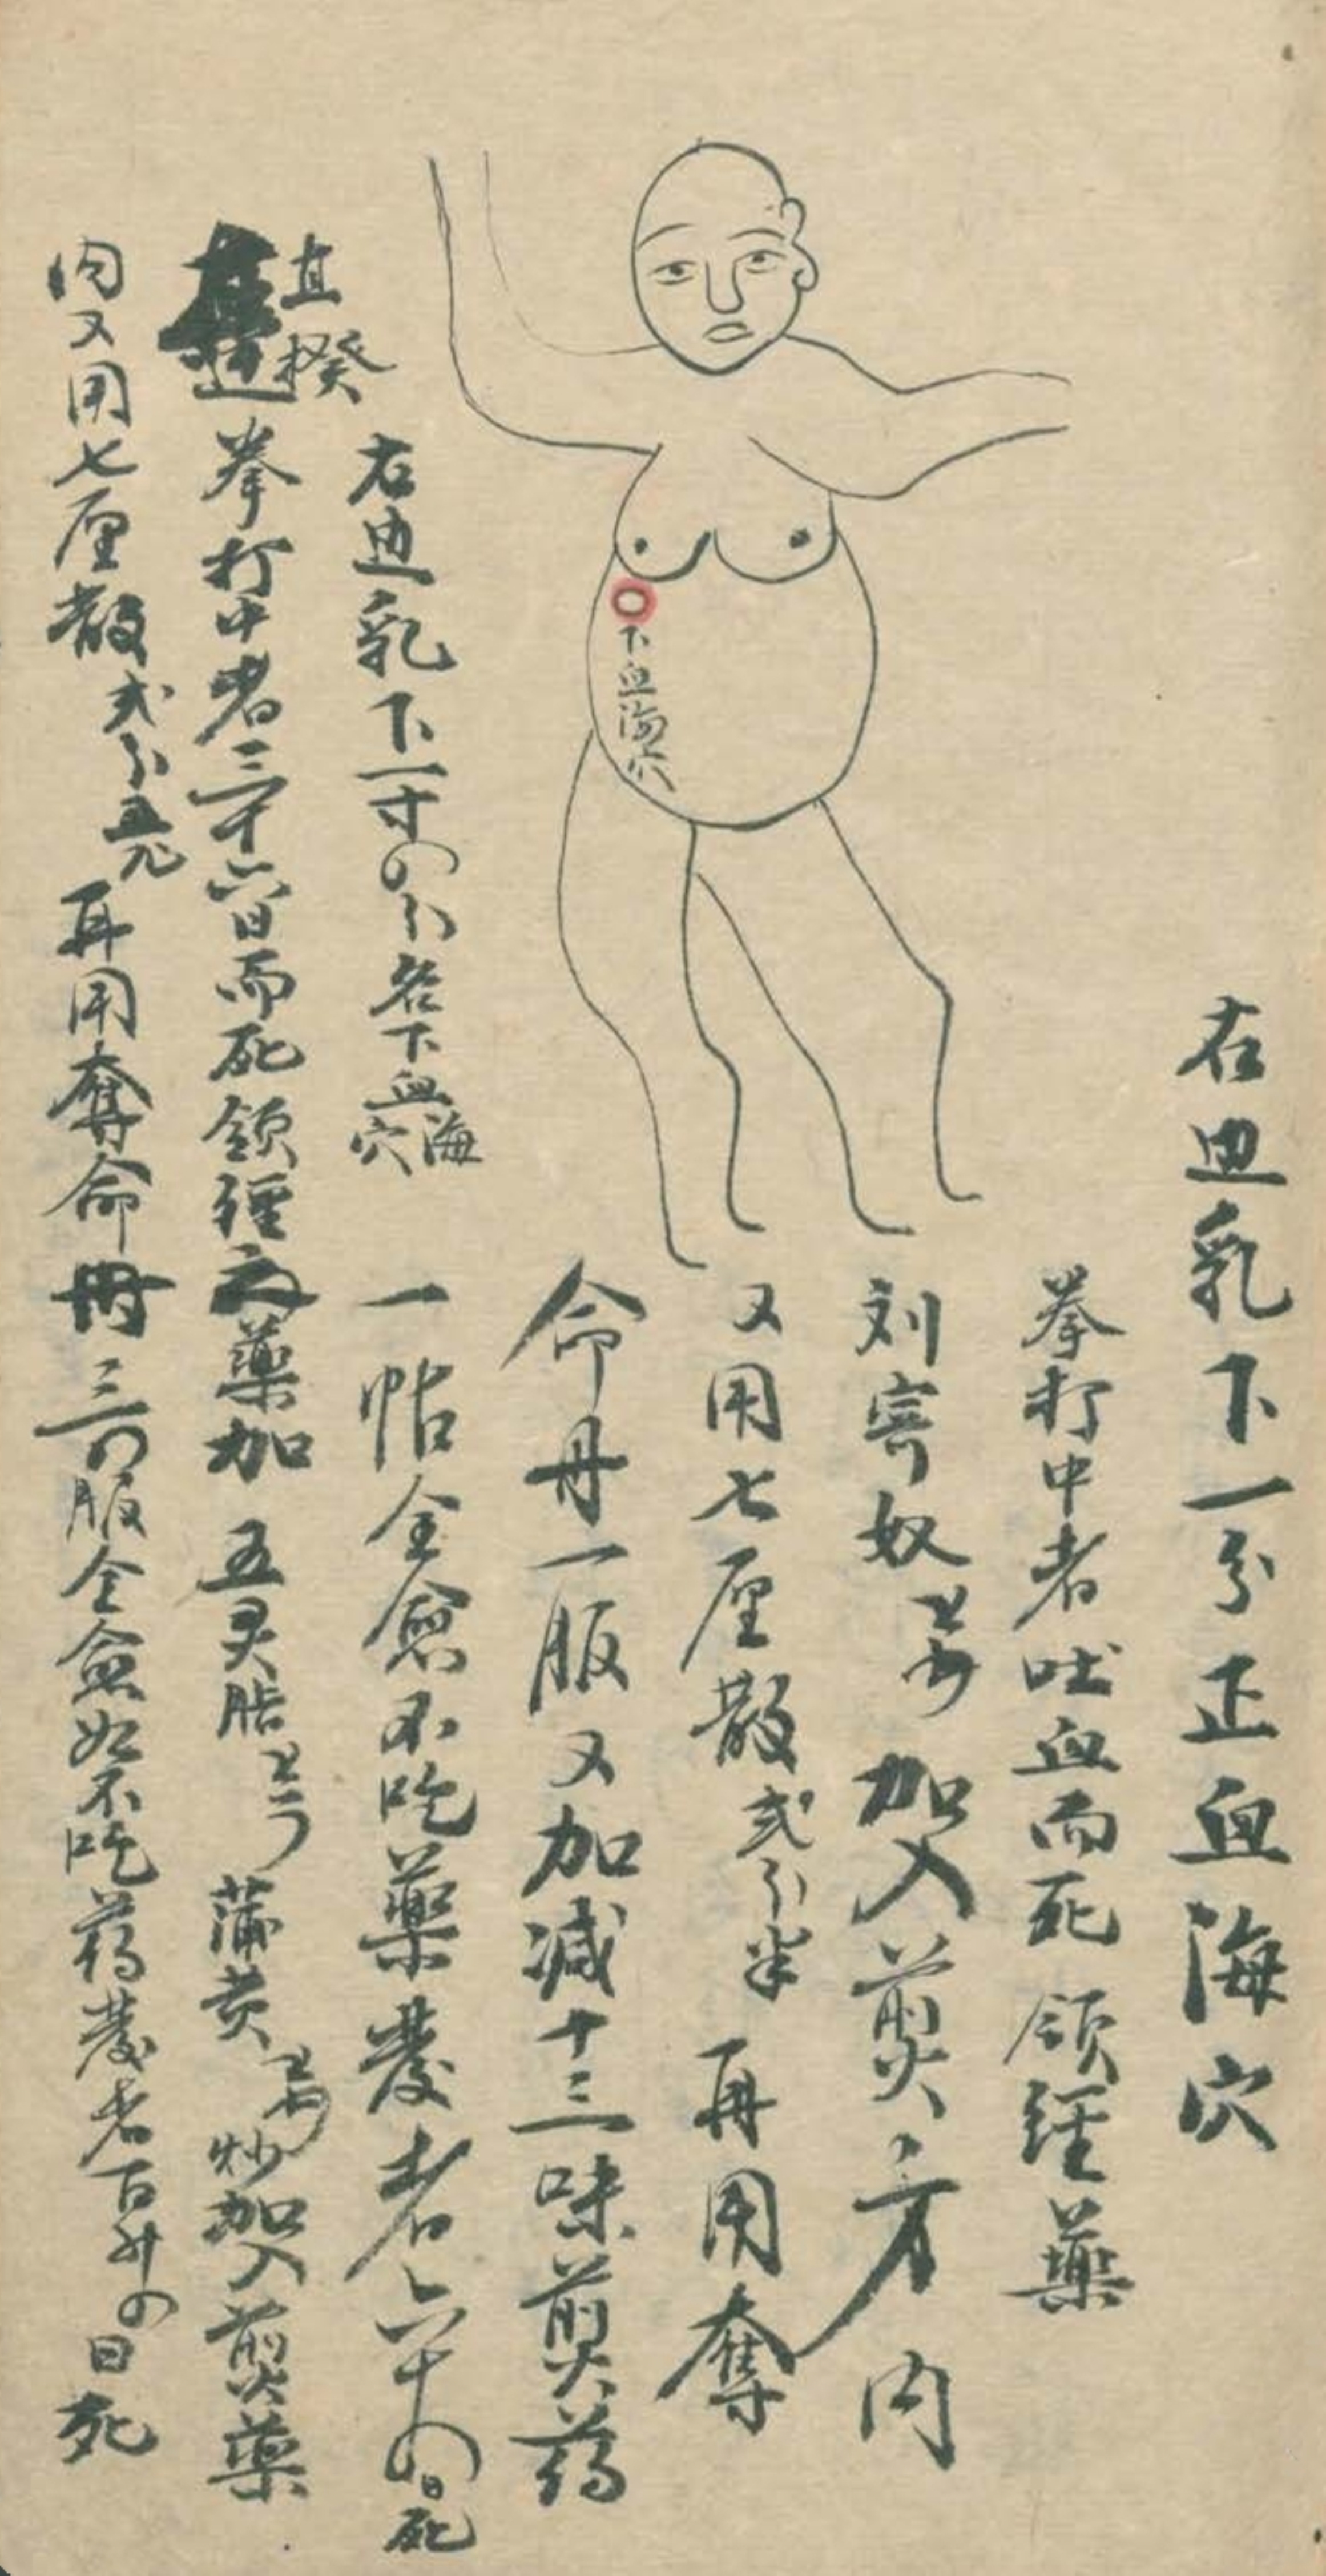 右边乳下一分正血海穴
拳打中者吐血而死 領經藥
刘寄奴 加入煎方內
又用七厘散弍分半 再用奪
命丹一服又加减十三味煎药
一帖全愈不吃藥發者六十四日死
右边乳下一寸四分名下血海穴
直揬
拳打中者三十六日而死領經之藥加 五灵脂 蒲黄 炒加入煎藥
內又用七厘散弍分五 再用奪命丹三四服全愈如不吃药發者百廿四日死
下血海穴